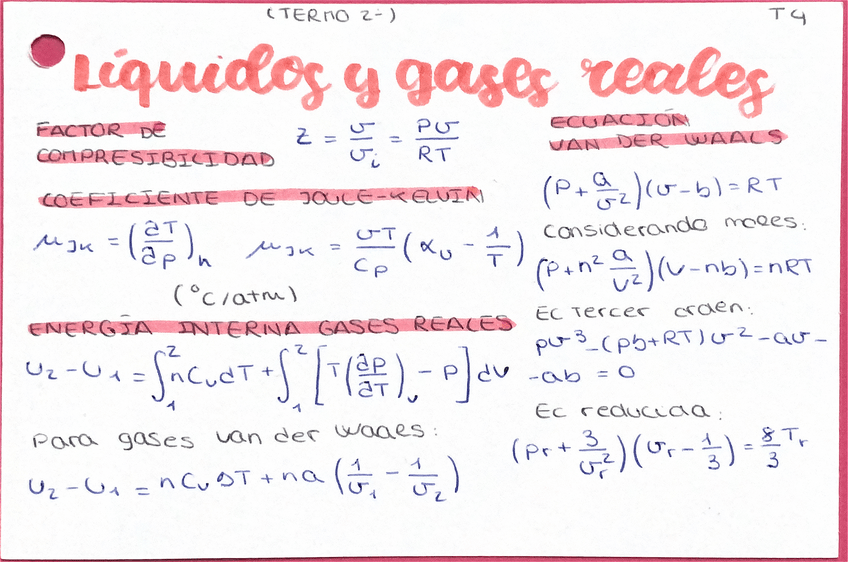 (TERMO 2-)
T4
Líquidos y gases reales
FACTOR DE
COMPRESIBILIDAD
z = v/vᵢ = Pv/RT
COEFICIENTE DE JOULE-KELVIN
μJK = (∂T/∂p)h    μJK = vT/cp (αv - 1/T)
(°C/atm)
ENERGÍA INTERNA GASES REALES
U₂ - U₁ = ∫₁² nCv dT + ∫₁² [T(∂p/∂T)v - P] dv
Para gases van der waals:
U₂ - U₁ = nCv ΔT + na (1/v₁ - 1/v₂)
ECUACIÓN
VAN DER WAALS
(P + a/v²)(v - b) = RT
Considerando moles:
(P + n² a/V²)(V - nb) = nRT
Ec tercer orden:
pv³ - (pb + RT)v² - av -
- ab = 0
Ec reducida:
(pr + 3/vr²)(vr - 1/3) = 8/3 Tr